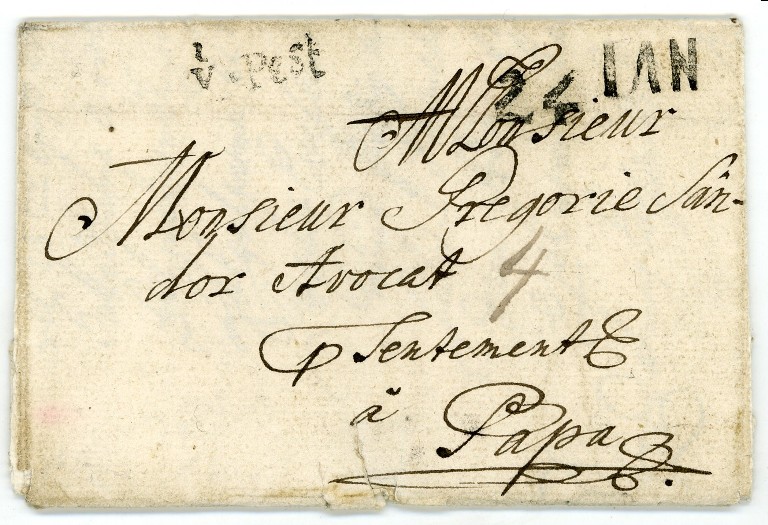 v. Pest 24 IAN
Monsieur
Monsieur Gregorie Sän-
dor Avocat 4
p Sentement
â Papa